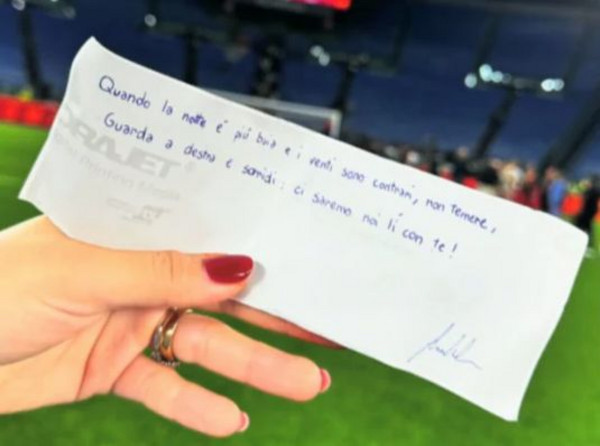 Quando la notte è più buia e i venti sono contrari, non temere,
Guarda a destra e sorridi: ci saremo noi lì con te!
ORAJET